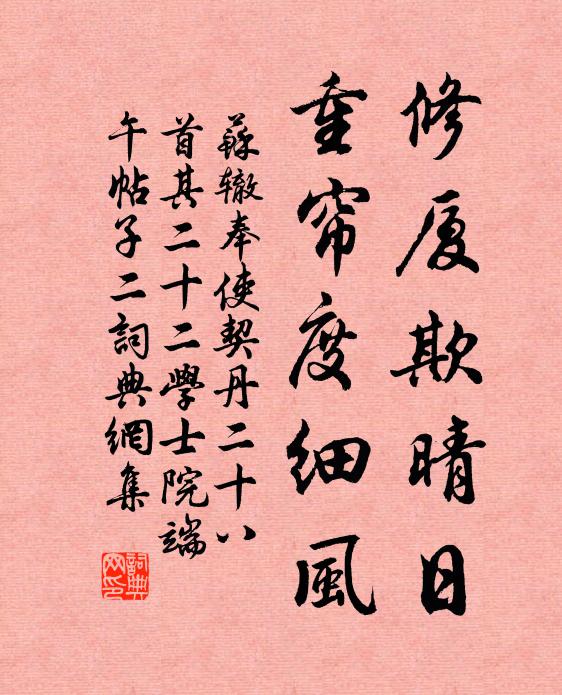 修厦欺晴日
重帘度细風
蘇辙奉使契丹二十八
首其二十二學士院端
午帖子二詞典網集
詞典
网印